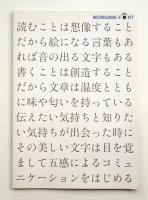 MORISAWA FONT
読むことは想像すること
だから絵になる言葉もあ
れば音の出る文字もある
書くことは創造すること
だから文章は温度ととも
に味や匂いを持っている
伝えたい気持ちと知りた
い気持ちが出会った時に
その美しい文字は目を覚
まして五感によるコミュ
ニケーションをはじめる